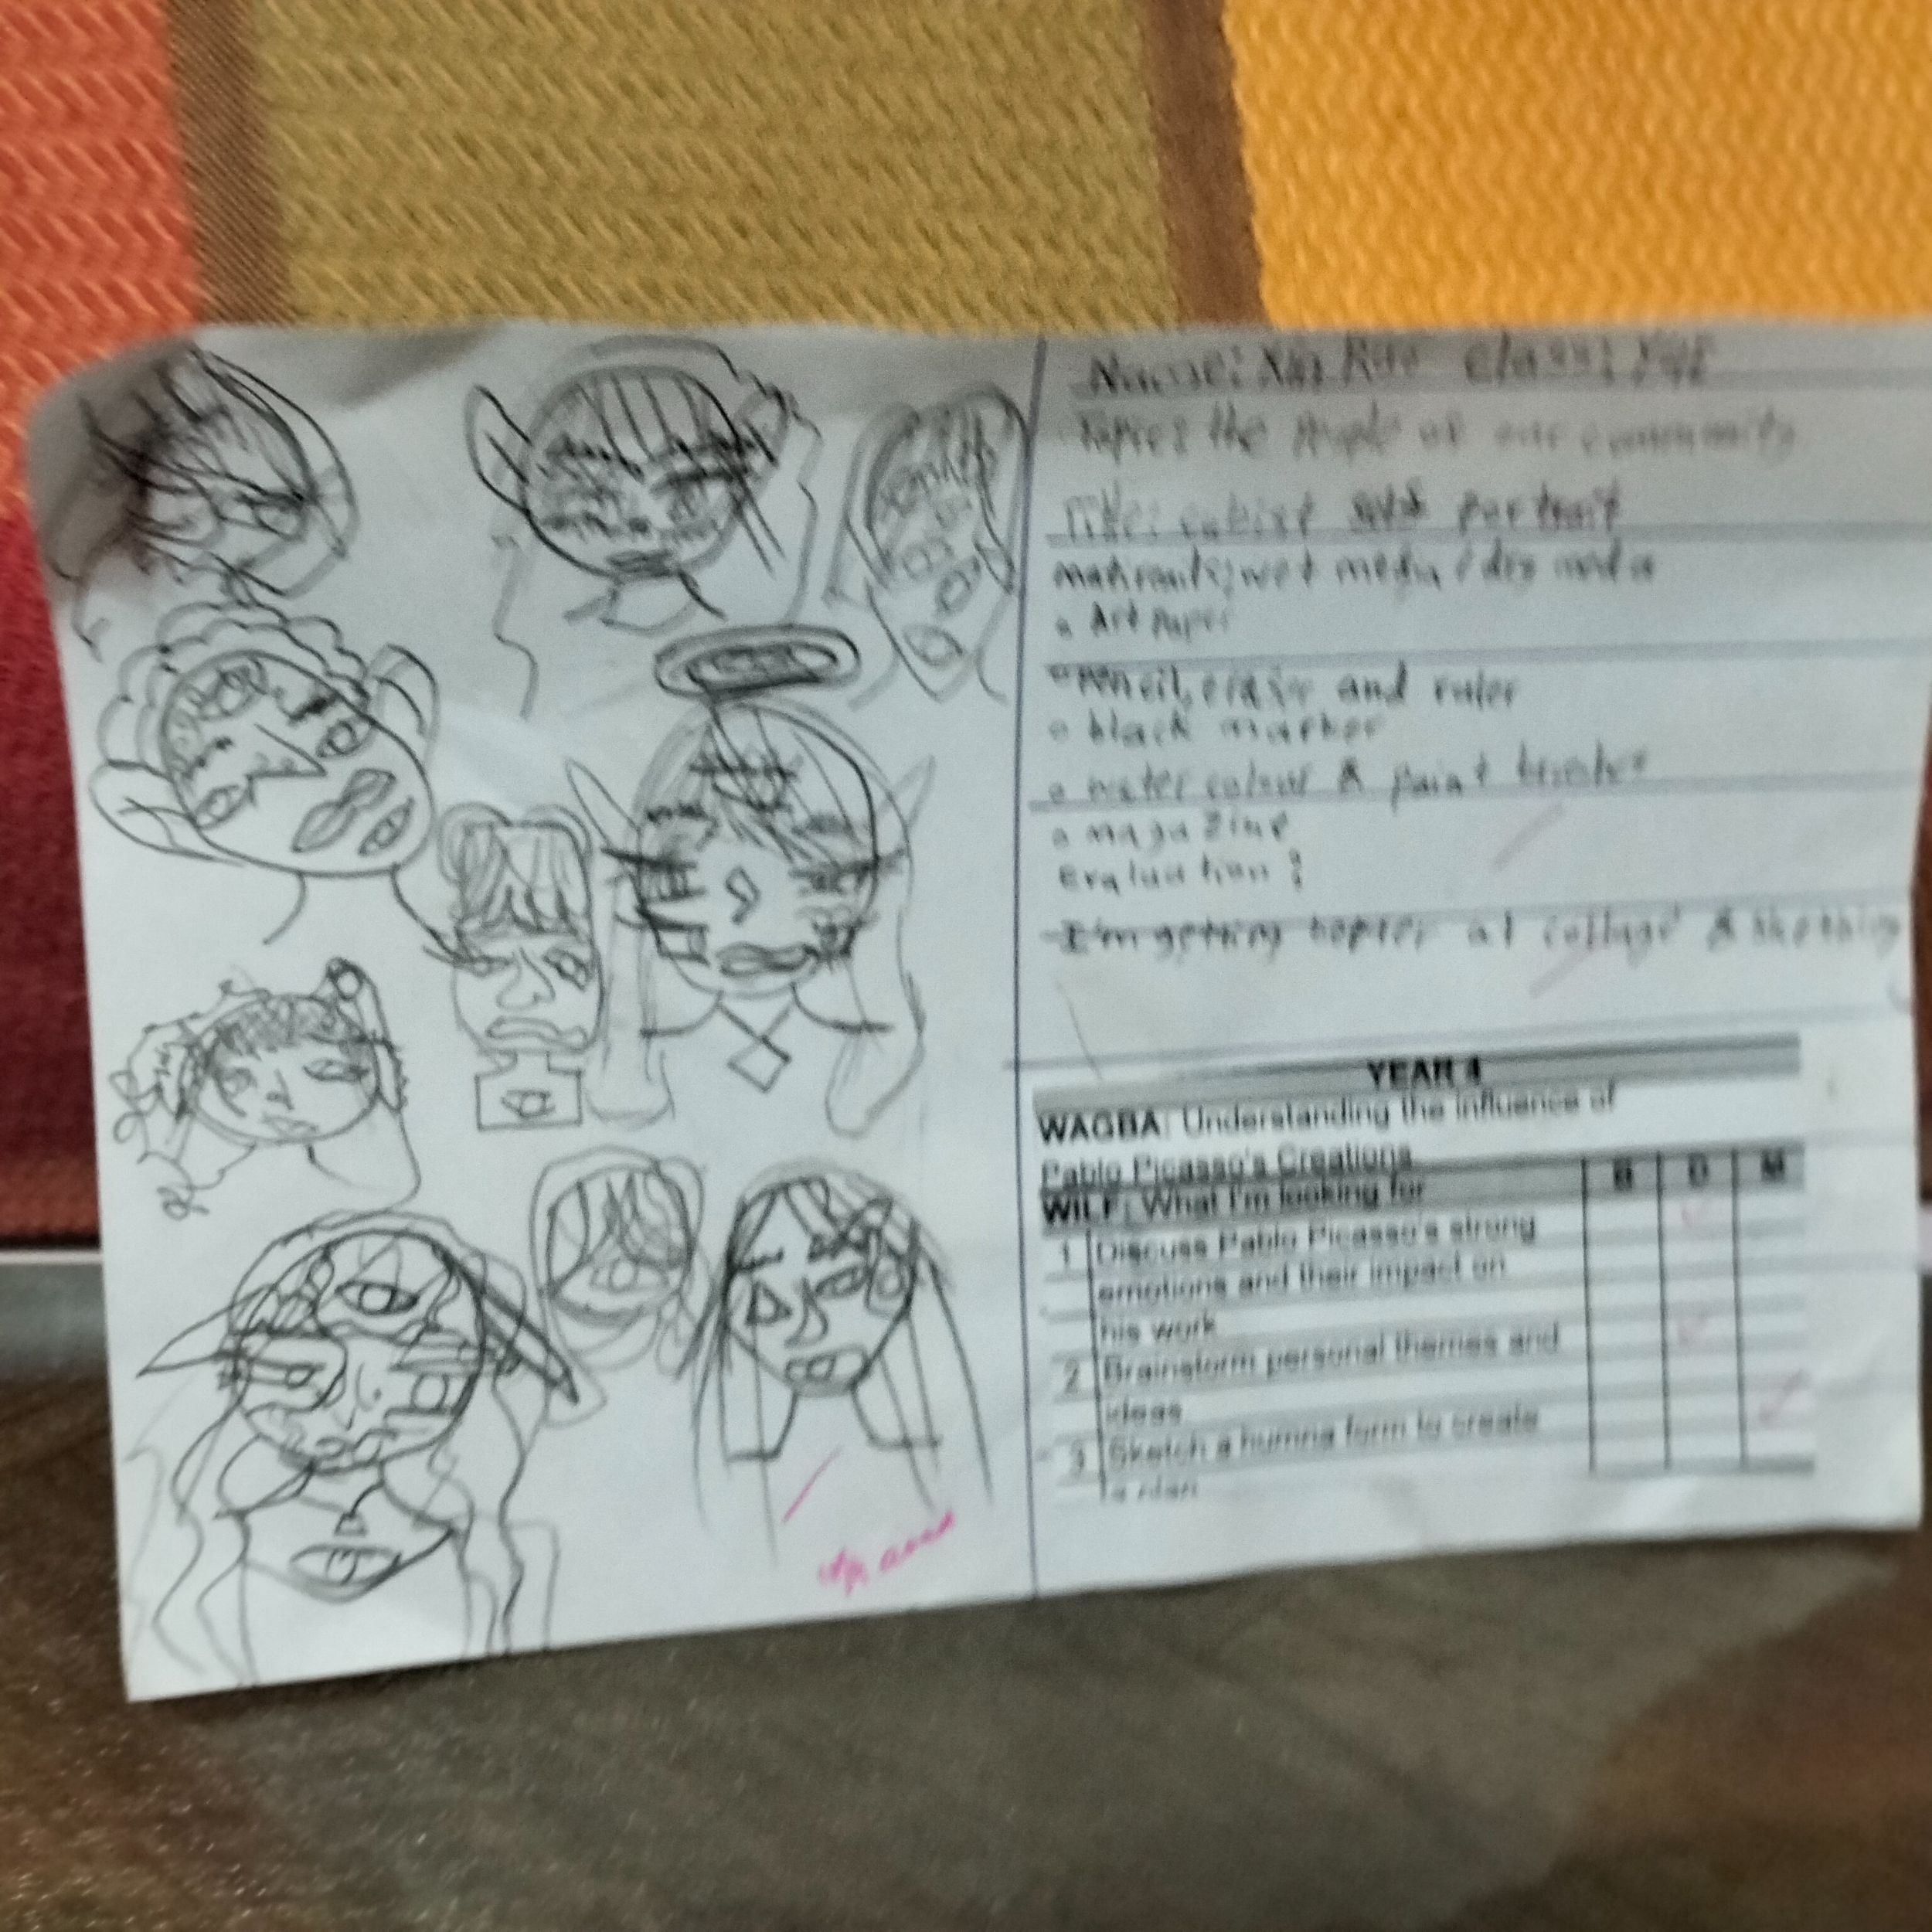 Name: Xin Rao Class: Y4F
Topic: the people of our community
Title: cubist self portrait
wet media / dry media
Art paper
pencil, eraser and ruler
black marker
water colour & paint brushes
magazine
Evaluation:
I'm getting better at collage & skething
YEAR 4
WAGBA: Understanding the influence of
Pablo Picasso's Creations
WILF: What I'm looking for B D M
1 Discuss Pablo Picasso's strong
emotions and their impact on
his work
2 Brainstorm personal themes and
ideas
3 Sketch a humna form to create
a plan